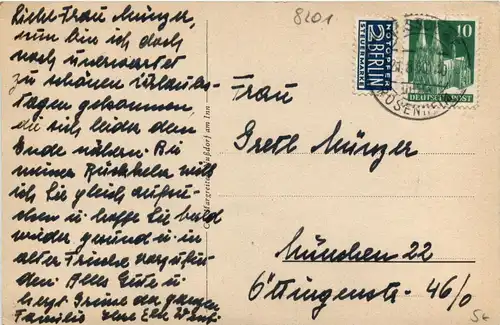 8201
Liebe Frau Münzer,
nun bin ich doch
noch unerwartet
zu schönen Urlaubs-
tagen gekommen
die sich leider dem
Ende nähern. Bei
meiner Rückkehr will
ich Sie gleich aufsu-
chen u. hoffe Sie bald
wieder gesund u. in
alter Frische vorzufin-
den. Alles Gute u.
herzl. Grüsse der ganzen
Familie Ihre
NOTOPFER
2 BERLIN
STEUERMARKE
10
DEUTSCHE POST
ROSENHEIM
Frau
Gretl Münzer
München 22
Öttingenstr. 46/0
Margreiter, Nußdorf am Inn